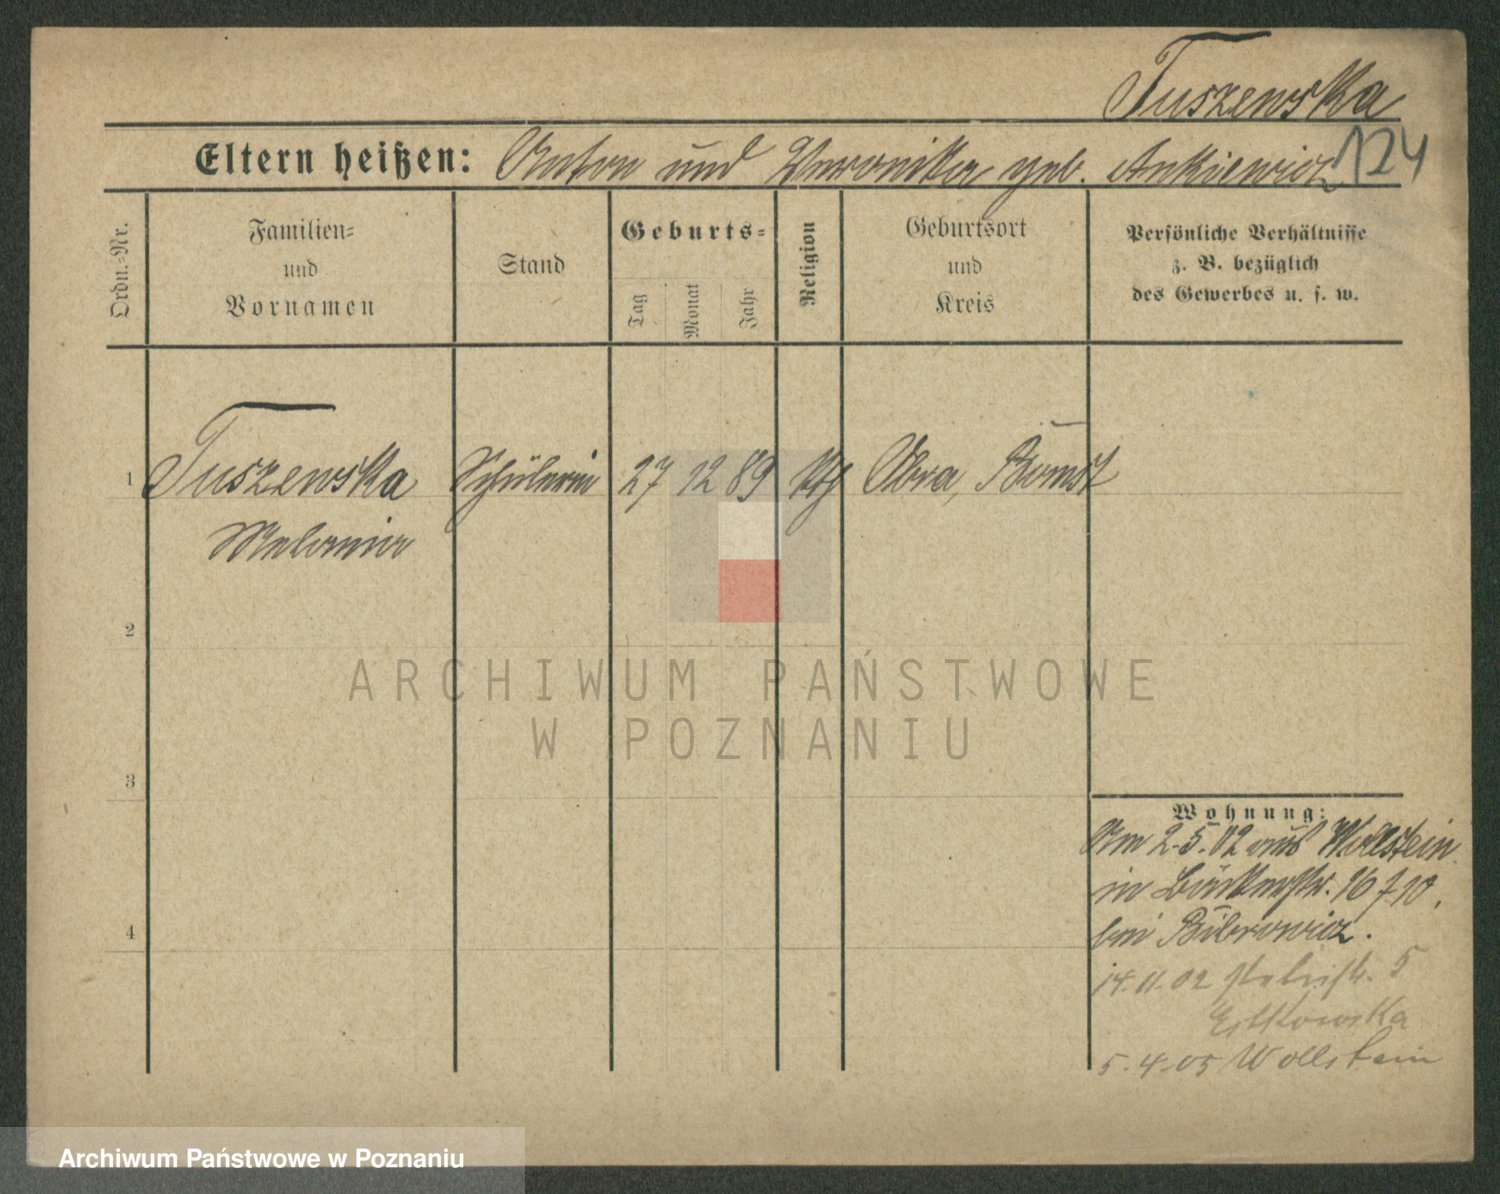 Tuszewska
Eltern heißen: Anton und Veronika geb. Ankiewicz
124
Ordn.-Nr.
Familien-
und
Vornamen
Stand
Geburts-
Tag
Monat
Jahr
Religion
Geburtsort
und
Kreis
Persönliche Verhältnisse
z. B. bezüglich
des Gewerbes u. s. w.
1
Tuszewska
Melania
Schülerin
27 12 89
kth
Obra, Bomst
2
3
4
ARCHIWUM PAŃSTWOWE
W POZNANIU
Wohnung:
Am 2.5.02 aus Wollstein
in Bäckerstr. 16
bei Bibrowicz.
14.11.02 5
5.4.05 Wollstein
Archiwum Państwowe w Poznaniu